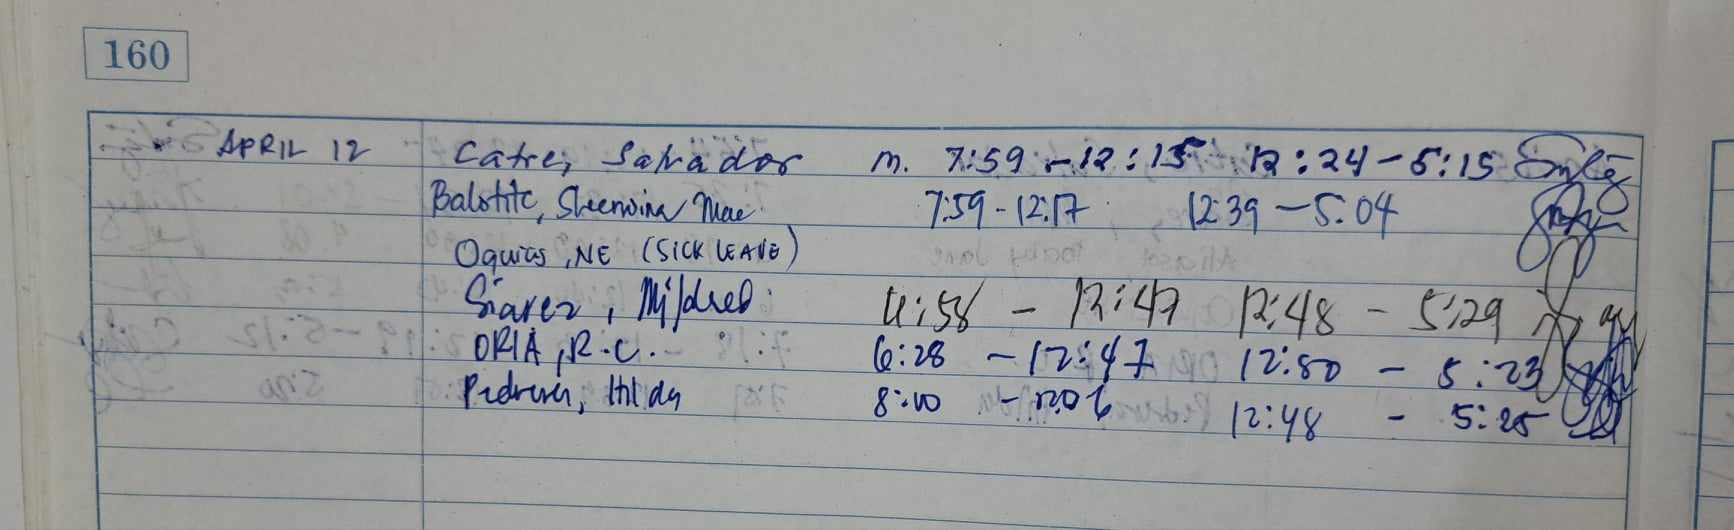 160
APRIL 12 Catre, Salvador M. 7:59 - 12:15 12:24 - 5:15
Balotite, Sheenvina Mae 7:59 - 12:17 12:39 - 5:04
Oquias, NE (SICK LEAVE)
Siarez, Mildred 4:58 - 12:47 12:48 - 5:29
ORIA, R.C. 6:28 - 12:47 12:50 - 5:23
Hilda 8:00 - 12:06 12:48 - 5:25